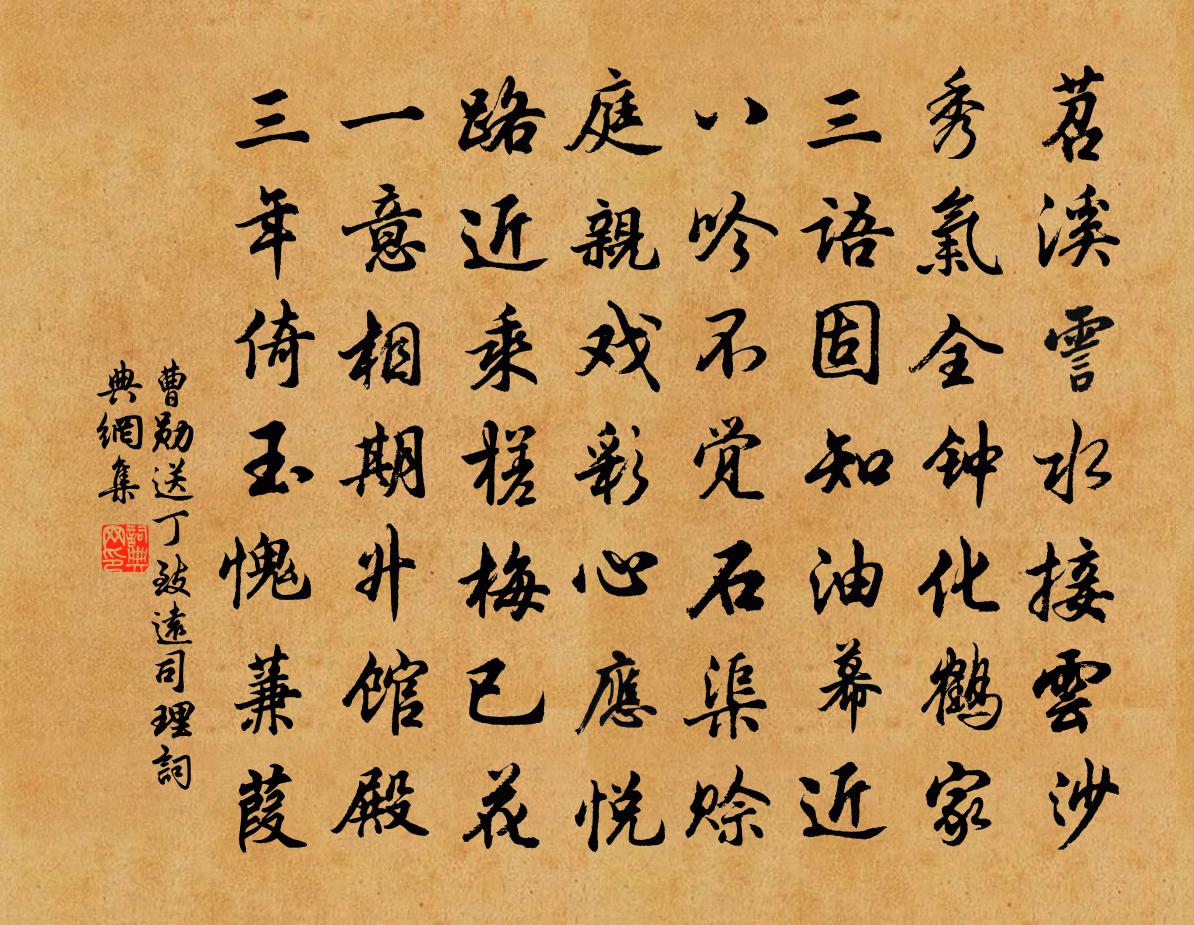 苕溪霅水接雲沙
秀氣全钟化鹤家
三語固知油幕近
八吟不觉石渠赊
庭親戏彩心應悦
路近乘槎梅已花
一意相期升馆殿
三年倚玉愧蒹葭
曹勛送丁致遠司理詞
典網集
詞典
网印